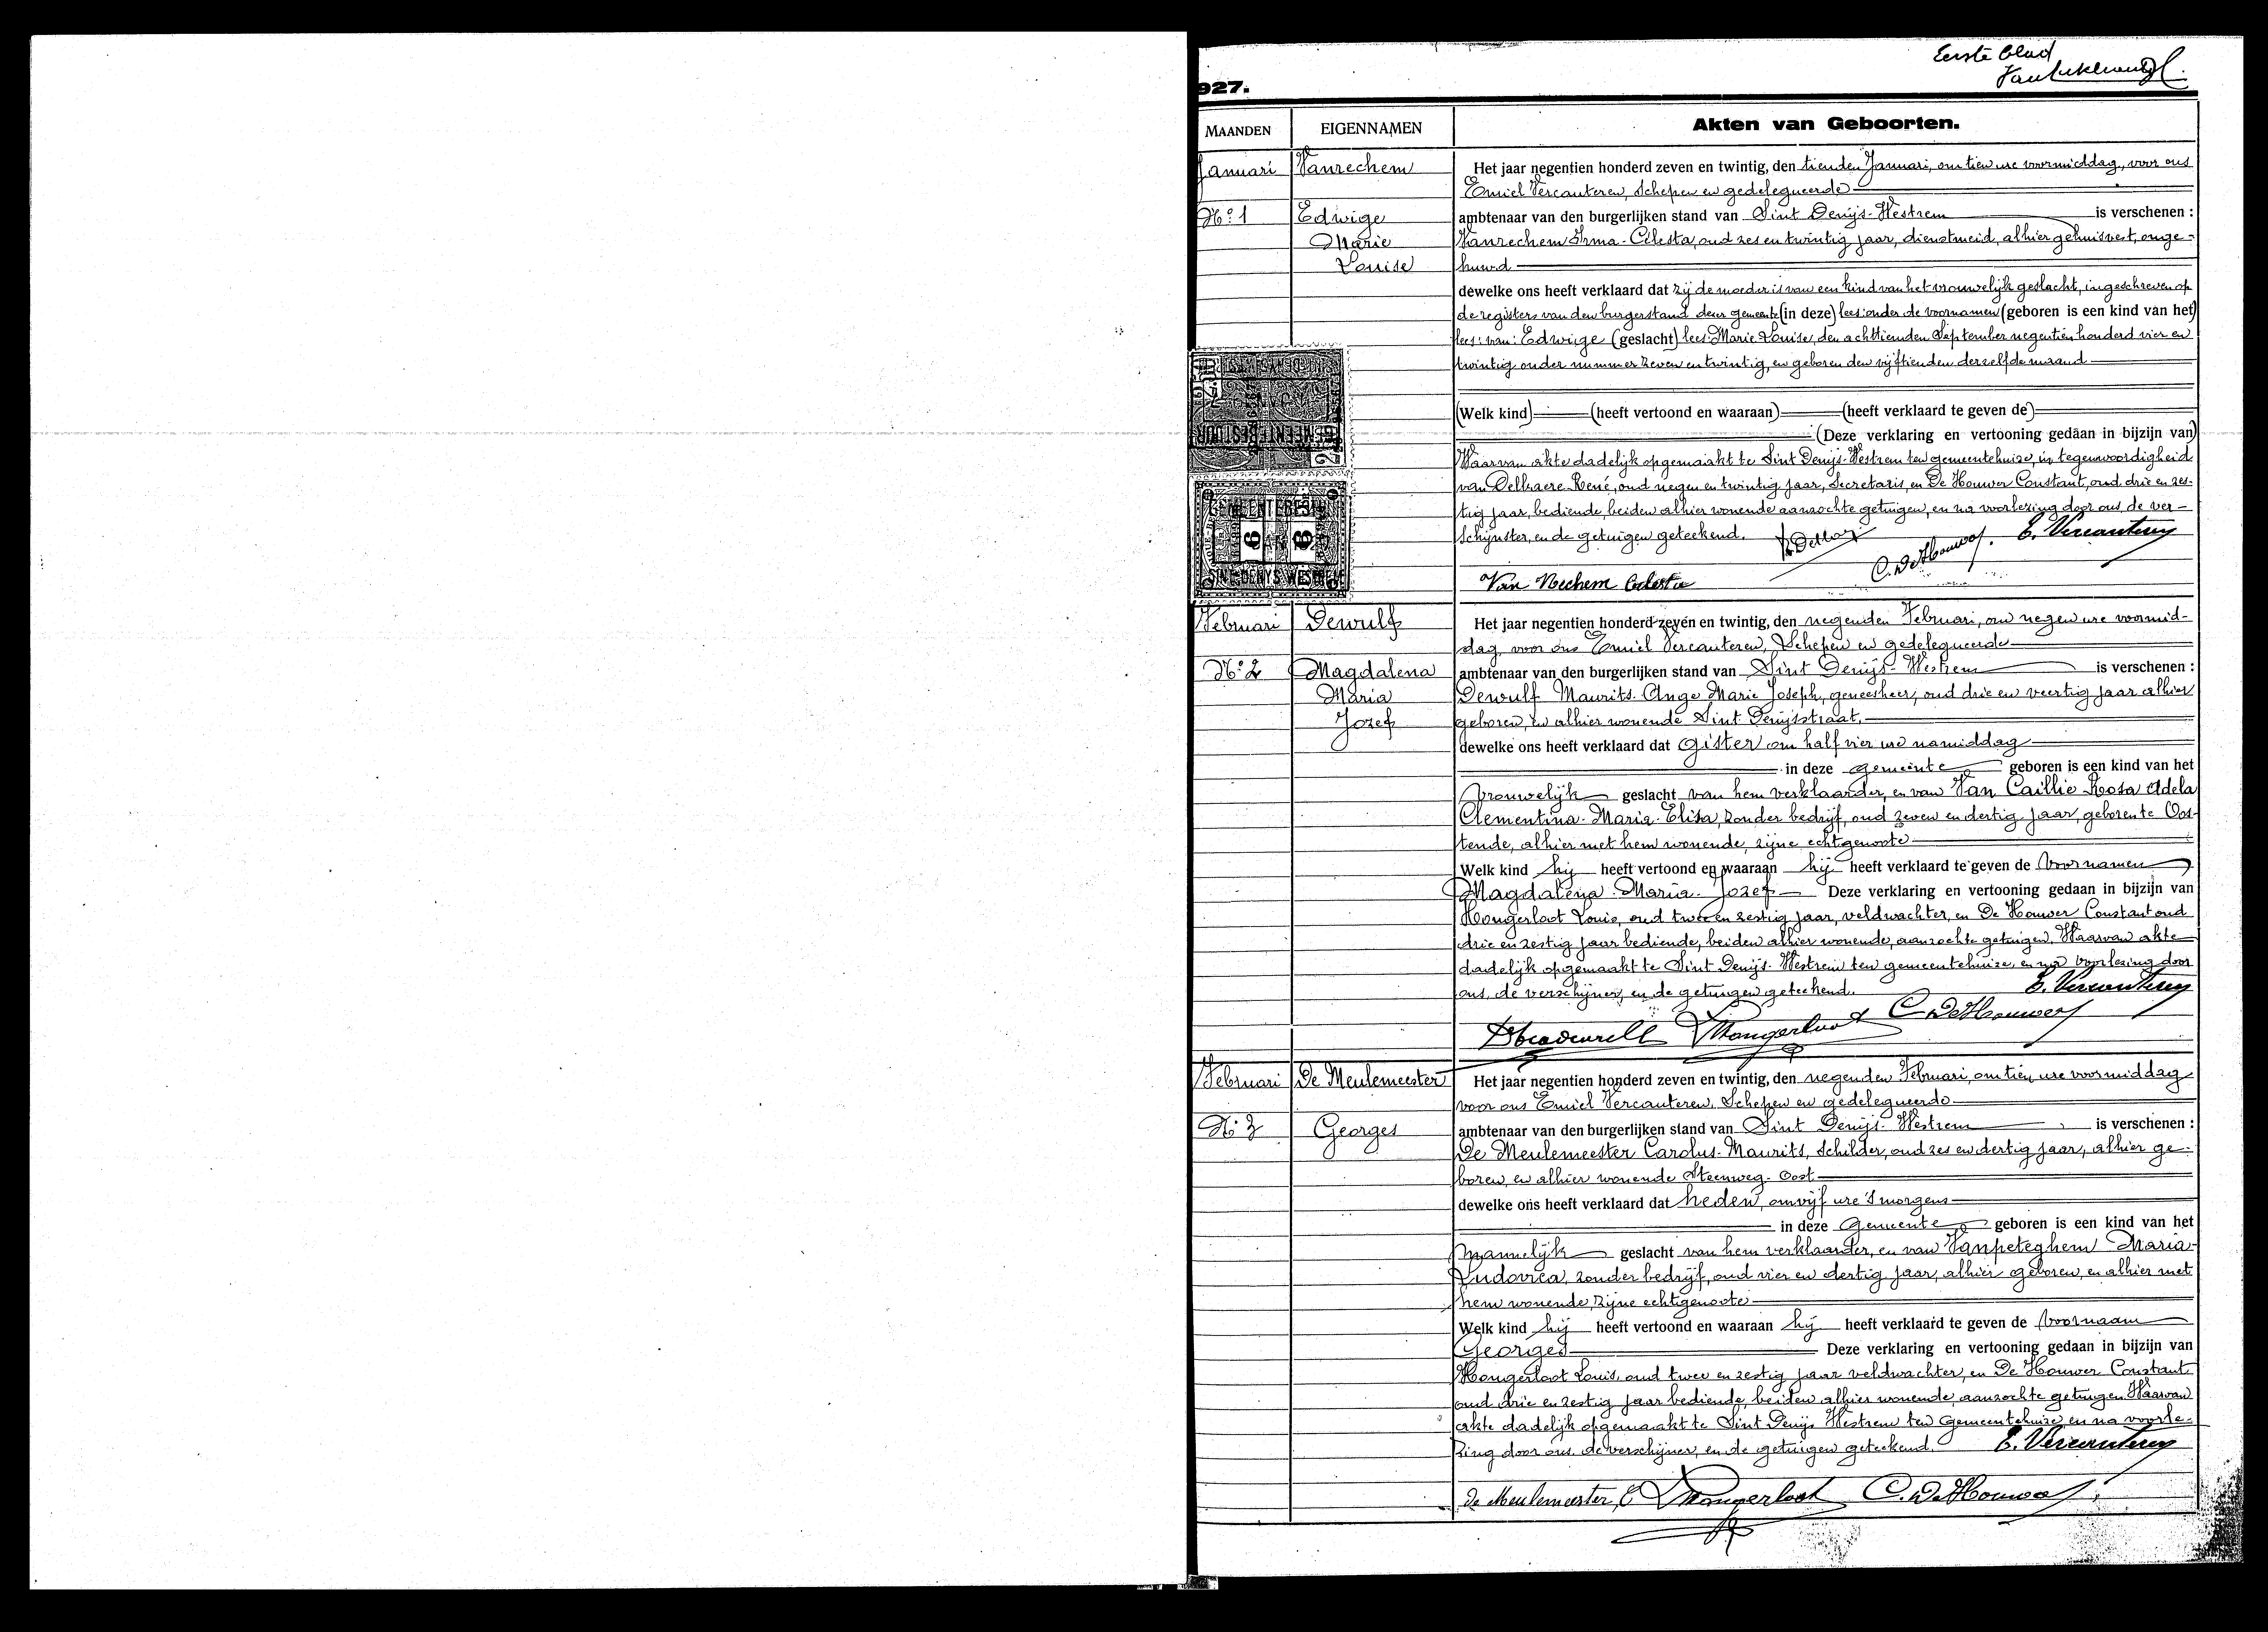 Eerste blad
927.
MAANDEN EIGENNAMEN Akten van Geboorten.
Januari Vanrechem Het jaar negentien honderd zeven en twintig, den tienden Januari, om tien ure voormiddag, voor ons
Emiel Vercauteren, Schepen en gedelegueerde
No. 1 Edwige ambtenaar van den burgerlijken stand van Sint Denijs-Westrem is verschenen :
Marie Vanrechem Irma-Celesta, oud zes en twintig jaar, dienstmeid, alhier gehuisvest, onge-
Louise huwd
dewelke ons heeft verklaard dat zij de moeder is van een kind van het vrouwelijk geslacht, ingeschreven op
de registers van den burgerstand dezer gemeente (in deze) lees: onder de voornamen (geboren is een kind van het)
lees: van: Edwige (geslacht) lees: Marie Louise, den achttienden September negentien honderd vier en
twintig onder nummer zeven en twintig, en geboren den vijftienden derzelfde maand
(Welk kind) (heeft vertoond en waaraan) (heeft verklaard te geven de)
(Deze verklaring en vertooning gedaan in bijzijn van)
Waarvan akte dadelijk opgemaakt te Sint Denijs-Westrem ten gemeentehuize, in tegenwoordigheid
van Delbaere René, oud negen en twintig jaar, Secretaris, en De Houwer Constant, oud drie en zes-
tig jaar, bediende, beiden alhier wonende aanzochte getuigen, en na voorlezing door ons, de ver-
schijnster, en de getuigen geteekend. E. Vercauteren
C. De Houwer.
Van Rechem Celesta
GEMEENTEBESTUUR
GEMEENTEBEST
6 6
SINT-DENYS WESTREM
Februari Dewulf Het jaar negentien honderd zeven en twintig, den negenden Februari, om negen ure voormid-
dag, voor ons Emiel Vercauteren, Schepen en gedelegueerde
No. 2 Magdalena ambtenaar van den burgerlijken stand van Sint Denijs-Westrem is verschenen :
Maria Dewulf Maurits-Ange Marie Joseph, geneesheer, oud drie en veertig jaar alhier
Jozef geboren, en alhier wonende Sint Denijsstraat.
dewelke ons heeft verklaard dat gister om half vier ure namiddag
in deze gemeente geboren is een kind van het
vrouwelijk geslacht van hem verklaarder, en van Van Caillie Rosa Adela
Clementina-Maria-Elisa, zonder bedrijf, oud zeven en dertig jaar, geboren te Oos-
tende, alhier met hem wonende, zijne echtgenoote
Welk kind hij heeft vertoond en waaraan hij heeft verklaard te geven de voornamen
Magdalena-Maria-Jozef Deze verklaring en vertooning gedaan in bijzijn van
Hongerloot Louis, oud twee en zestig jaar, veldwachter, en De Houwer Constant oud
drie en zestig jaar bediende, beiden alhier wonende, aanzochte getuigen. Waarvan akte
dadelijk opgemaakt te Sint Denijs-Westrem ten gemeentehuize, en na voorlezing door
ons, de verschijner, en de getuigen geteekend. E. Vercauteren
Hongerloot C. De Houwer
Februari De Meulemeester Het jaar negentien honderd zeven en twintig, den negenden Februari, om tien ure voormiddag
voor ons Emiel Vercauteren, Schepen en gedelegueerde
No. 3 Georges ambtenaar van den burgerlijken stand van Sint Denijs-Westrem is verschenen :
De Meulemeester Carolus-Maurits, Schilder, oud zes en dertig jaar, alhier ge-
boren, en alhier wonende Steenweg-Oost
dewelke ons heeft verklaard dat heden, om vijf ure 's morgens
in deze Gemeente geboren is een kind van het
mannelijk geslacht van hem verklaarder, en van Vanpeteghem Maria-
Ludovica, zonder bedrijf, oud vier en dertig jaar, alhier geboren, en alhier met
hem wonende, zijne echtgenoote
Welk kind hij heeft vertoond en waaraan hij heeft verklaard te geven de voornaam
Georges Deze verklaring en vertooning gedaan in bijzijn van
Hongerloot Louis, oud twee en zestig jaar veldwachter, en De Houwer Constant
oud drie en zestig jaar bediende, beiden alhier wonende, aanzochte getuigen. Waarvan
akte dadelijk opgemaakt te Sint Denijs Westrem ten Gemeentehuize, en na voorle-
zing door ons, de verschijner, en de getuigen geteekend. E. Vercauteren
De Meulemeester, C Hongerloot C. De Houwer